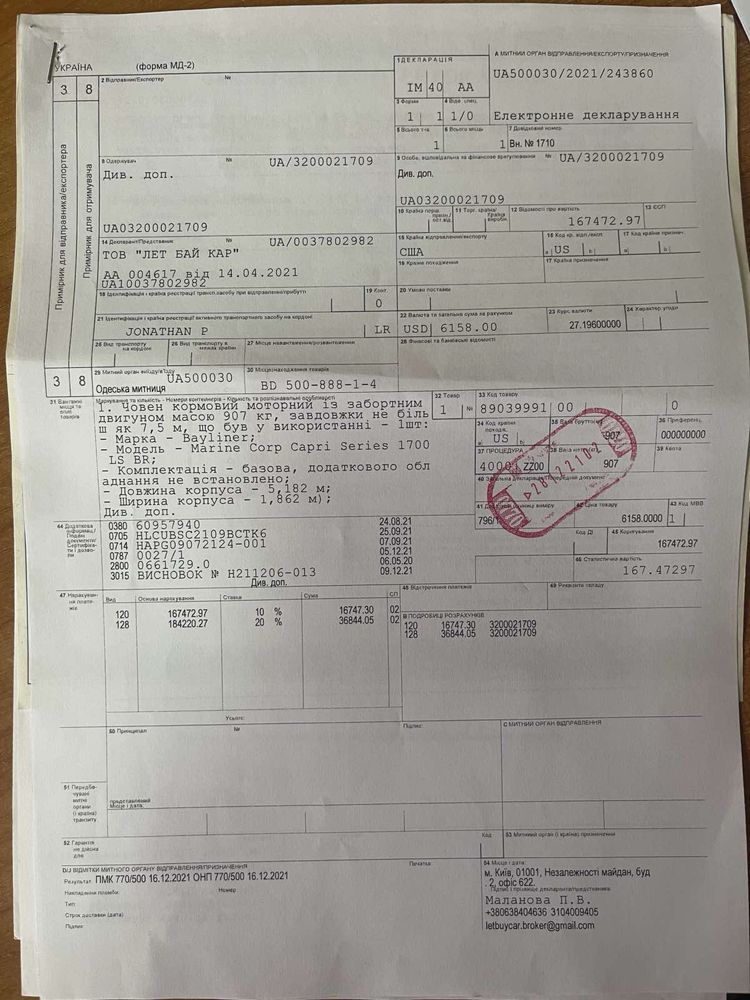 УКРАЇНА
(форма МД-2)
1 ДЕКЛАРАЦІЯ
А МИТНИЙ ОРГАН ВІДПРАВЛЕННЯ/ЕКСПОРТУ/ПРИЗНАЧЕННЯ
2 Відправник/Експортер
№
UA500030/2021/243860
3 8
ІМ 40 АА
3 Форми
1 1
1/0
Електронне декларування
5 Всього т-в
6 Всього місць
7 Довідковий номер
1
1
Вн. № 1710
Примірник для відправника/експортера
Примірник для отримувача
8 Одержувач
№
UA/3200021709
9 Особа, відповідальна за фінансове врегулювання
№
UA/3200021709
Див. доп.
Див. доп.
UA03200021709
UA03200021709
12 Відомості про вартість
13 ЄСП
167472.97
14 Декларант/Представник
№
UA/0037802982
15 Країна відправлення/експорту
ТОВ "ЛЕТ БАЙ КАР"
США
US
16 Країна походження
17 Країна призначення
АА 004617 від 14.04.2021
UA10037802982
18 Ідентифікація і країна реєстрації трансп.засобу при відправленні/прибутті
19 Конт.
0
20 Умови поставки
21 Ідентифікація і країна реєстрації активного транспортного засобу на кордоні
22 Валюта та загальна сума за рахунком
23 Курс валюти
24 Характер угоди
JONATHAN P
LR
USD 6158.00
27.19600000
25 Вид транспорту на кордоні
26 Вид транспорту в межах країни
27 Місце навантаження/розвантаження
28 Фінансові та банківські відомості
3 8
29 Митний орган виїзду/в'їзду
UA500030
30 Місцезнаходження товарів
Одеська митниця
BD 500-888-1-4
31 Вантажні місця та опис товарів
Маркування та кількість - Номери контейнерів - Кількість та розпізнавальні особливості
32 Товар
1 №
33 Код товару
89039991 00 0
1. Човен кормовий моторний із забортним
двигуном масою 907 кг, завдовжки не біль
ш як 7,5 м, що був у використанні - 1шт:
- Марка - Bayliner;
- Модель - Marine Corp Capri Series 1700
LS BR;
- Комплектація - базова, додаткового обл
аднання не встановлено;
- Довжина корпуса - 5,182 м;
- Ширина корпуса - 1,862 м);
Див. доп.
34 Код країни походж.
US
35 Вага брутто
907
36 Преференц.
000000000
37 ПРОЦЕДУРА
4000 ZZ00
907
39 Квота
42 Ціна товару
43 Код МВВ
796/1
6158.0000
1
44 Додаткова інформац./ Подані документи/ Сертифікати і дозволи
0380 60957940 24.08.21
0705 HLCUBSC2109BCTK6 25.09.21
0714 HAPG09072124-001 07.09.21
0787 0027/1 05.12.21
2800 0661729.0 06.05.20
3015 ВИСНОВОК № Н211206-013 09.12.21
Див. доп.
Код ДІ
45 Коригування
167472.97
46 Статистична вартість
167.47297
47 Нарахування платежів
Вид
Основа нарахування
Ставка
Сума
СП
48 Відстрочення платежів
49 Реквізити складу
120 167472.97 10 % 16747.30 02
128 184220.27 20 % 36844.05 02
В ПОДРОБИЦІ РОЗРАХУНКІВ
120 16747.30 3200021709
128 36844.05 3200021709
Усього:
50 Принципал
№
Підпис:
С МИТНИЙ ОРГАН ВІДПРАВЛЕННЯ
51 Передбачувані митні органи (і країна) транзиту
представлений
Місце і дата:
52 Гарантія не дійсна для
Код
53 Митний орган (і країна) призначення
D/J ВІДМІТКИ МИТНОГО ОРГАНУ ВІДПРАВЛЕННЯ/ПРИЗНАЧЕННЯ
Печатка:
54 Місце і дата:
Результат: ПМК 770/500 16.12.2021 ОНП 770/500 16.12.2021
Накладення пломби:
Номер
Тип:
Строк доставки (дата)
Підпис
м. Київ, 01001, Незалежності майдан, буд
. 2, офіс 622.
Підпис і прізвище декларанта/представника:
Маланова П.В.
+380638404636 3104009405
letbuycar.broker@gmail.com